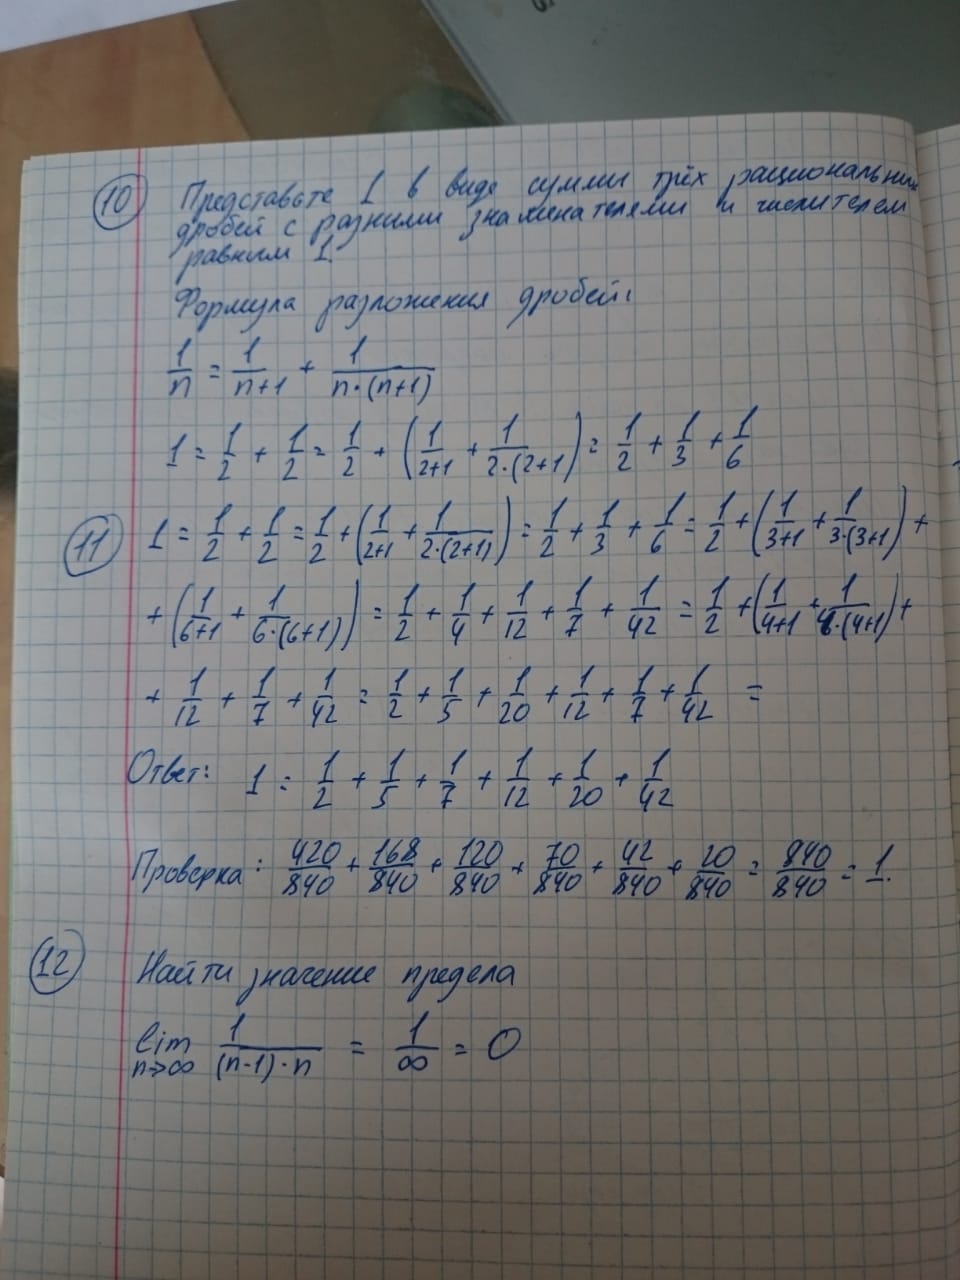 10 Представьте 1 в виде суммы трёх рациональных
дробей с разными знаменателями и числителем
равным 1.
Формула разложения дробей:
1/n = 1/(n+1) + 1/(n·(n+1))
1 = 1/2 + 1/2 = 1/2 + (1/(2+1) + 1/(2·(2+1)) = 1/2 + 1/3 + 1/6
11 1 = 1/2 + 1/2 = 1/2 + (1/(2+1) + 1/(2·(2+1))) = 1/2 + 1/3 + 1/6 = 1/2 + (1/(3+1) + 1/(3·(3+1)) +
+ (1/(6+1) + 1/(6·(6+1))) = 1/2 + 1/4 + 1/12 + 1/7 + 1/42 = 1/2 + (1/(4+1) + 1/(4·(4+1)) +
+ 1/12 + 1/7 + 1/42 = 1/2 + 1/5 + 1/20 + 1/12 + 1/7 + 1/42 =
Ответ: 1 = 1/2 + 1/5 + 1/7 + 1/12 + 1/20 + 1/42
Проверка: 420/840 + 168/840 + 120/840 + 70/840 + 42/840 + 20/840 = 840/840 = 1.
12 Найти значение предела
lim n→∞ 1/((n-1)·n) = 1/∞ = 0